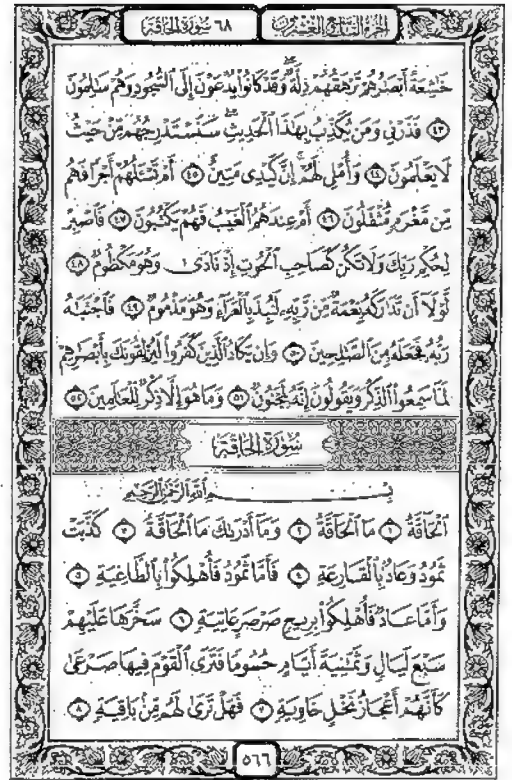 الجزء التاسع والعشرون
٦٨ سورة الحاقة
خَٰشِعَةً أَبۡصَٰرُهُمۡ تَرۡهَقُهُمۡ ذِلَّةٞۖ وَقَدۡ كَانُواْ يُدۡعَوۡنَ إِلَى ٱلسُّجُودِ وَهُمۡ سَٰلِمُونَ
٤٣ فَذَرۡنِي وَمَن يُكَذِّبُ بِهَٰذَا ٱلۡحَدِيثِۖ سَنَسۡتَدۡرِجُهُم مِّنۡ حَيۡثُ
لَا يَعۡلَمُونَ ٤٤ وَأُمۡلِي لَهُمۡۚ إِنَّ كَيۡدِي مَتِينٌ ٤٥ أَمۡ تَسۡـَٔلُهُمۡ أَجۡرٗا فَهُم
مِّن مَّغۡرَمٖ مُّثۡقَلُونَ ٤٦ أَمۡ عِندَهُمُ ٱلۡغَيۡبُ فَهُمۡ يَكۡتُبُونَ ٤٧ فَٱصۡبِرۡ
لِحُكۡمِ رَبِّكَ وَلَا تَكُن كَصَاحِبِ ٱلۡحُوتِ إِذۡ نَادَىٰ وَهُوَ مَكۡظُومٞ ٤٨
لَّوۡلَآ أَن تَدَٰرَكَهُۥ نِعۡمَةٞ مِّن رَّبِّهِۦ لَنُبِذَ بِٱلۡعَرَآءِ وَهُوَ مَذۡمُومٞ ٤٩ فَٱجۡتَبَٰهُ
رَبُّهُۥ فَجَعَلَهُۥ مِنَ ٱلصَّٰلِحِينَ ٥٠ وَإِن يَكَادُ ٱلَّذِينَ كَفَرُواْ لَيُزۡلِقُونَكَ بِأَبۡصَٰرِهِمۡ
لَمَّا سَمِعُواْ ٱلذِّكۡرَ وَيَقُولُونَ إِنَّهُۥ لَمَجۡنُونٞ ٥١ وَمَا هُوَ إِلَّا ذِكۡرٞ لِّلۡعَٰلَمِينَ ٥٢
سورة الحاقة
بِسۡمِ ٱللَّهِ ٱلرَّحۡمَٰنِ ٱلرَّحِيمِ
ٱلۡحَآقَّةُ ١ مَا ٱلۡحَآقَّةُ ٢ وَمَآ أَدۡرَىٰكَ مَا ٱلۡحَآقَّةُ ٣ كَذَّبَتۡ
ثَمُودُ وَعَادُۢ بِٱلۡقَارِعَةِ ٤ فَأَمَّا ثَمُودُ فَأُهۡلِكُواْ بِٱلطَّاغِيَةِ ٥
وَأَمَّا عَادٞ فَأُهۡلِكُواْ بِرِيحٖ صَرۡصَرٍ عَاتِيَةٖ ٦ سَخَّرَهَا عَلَيۡهِمۡ
سَبۡعَ لَيَالٖ وَثَمَٰنِيَةَ أَيَّامٍ حُسُومٗا فَتَرَى ٱلۡقَوۡمَ فِيهَا صَرۡعَىٰ
كَأَنَّهُمۡ أَعۡجَازُ نَخۡلٍ خَاوِيَةٖ ٧ فَهَلۡ تَرَىٰ لَهُم مِّنۢ بَاقِيَةٖ ٨
٥٦٦